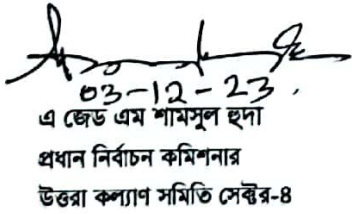 03-12-23.
এ জেড এম শামসুল হুদা
প্রধান নির্বাচন কমিশনার
উত্তরা কল্যাণ সমিতি সেক্টর-৪